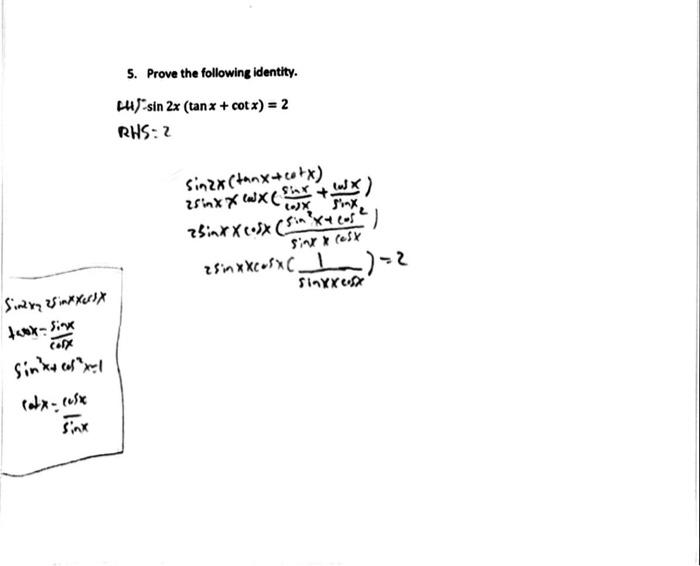 5. Prove the following identity.
LHS=sin 2x (tan x + cot x) = 2
RHS=2
sin2x(tanx+cotx)
2sinx×cosx(sinx/cosx + cosx/sinx)
2sinx×cosx(sin²x+cos²/sinx×cosx)
2sinx×cosx(1/sinx×cosx)=2
sin2x=2sinx×cosx
tanx=sinx/cosx
sin²x+cos²x=1
cotx=cosx/sinx